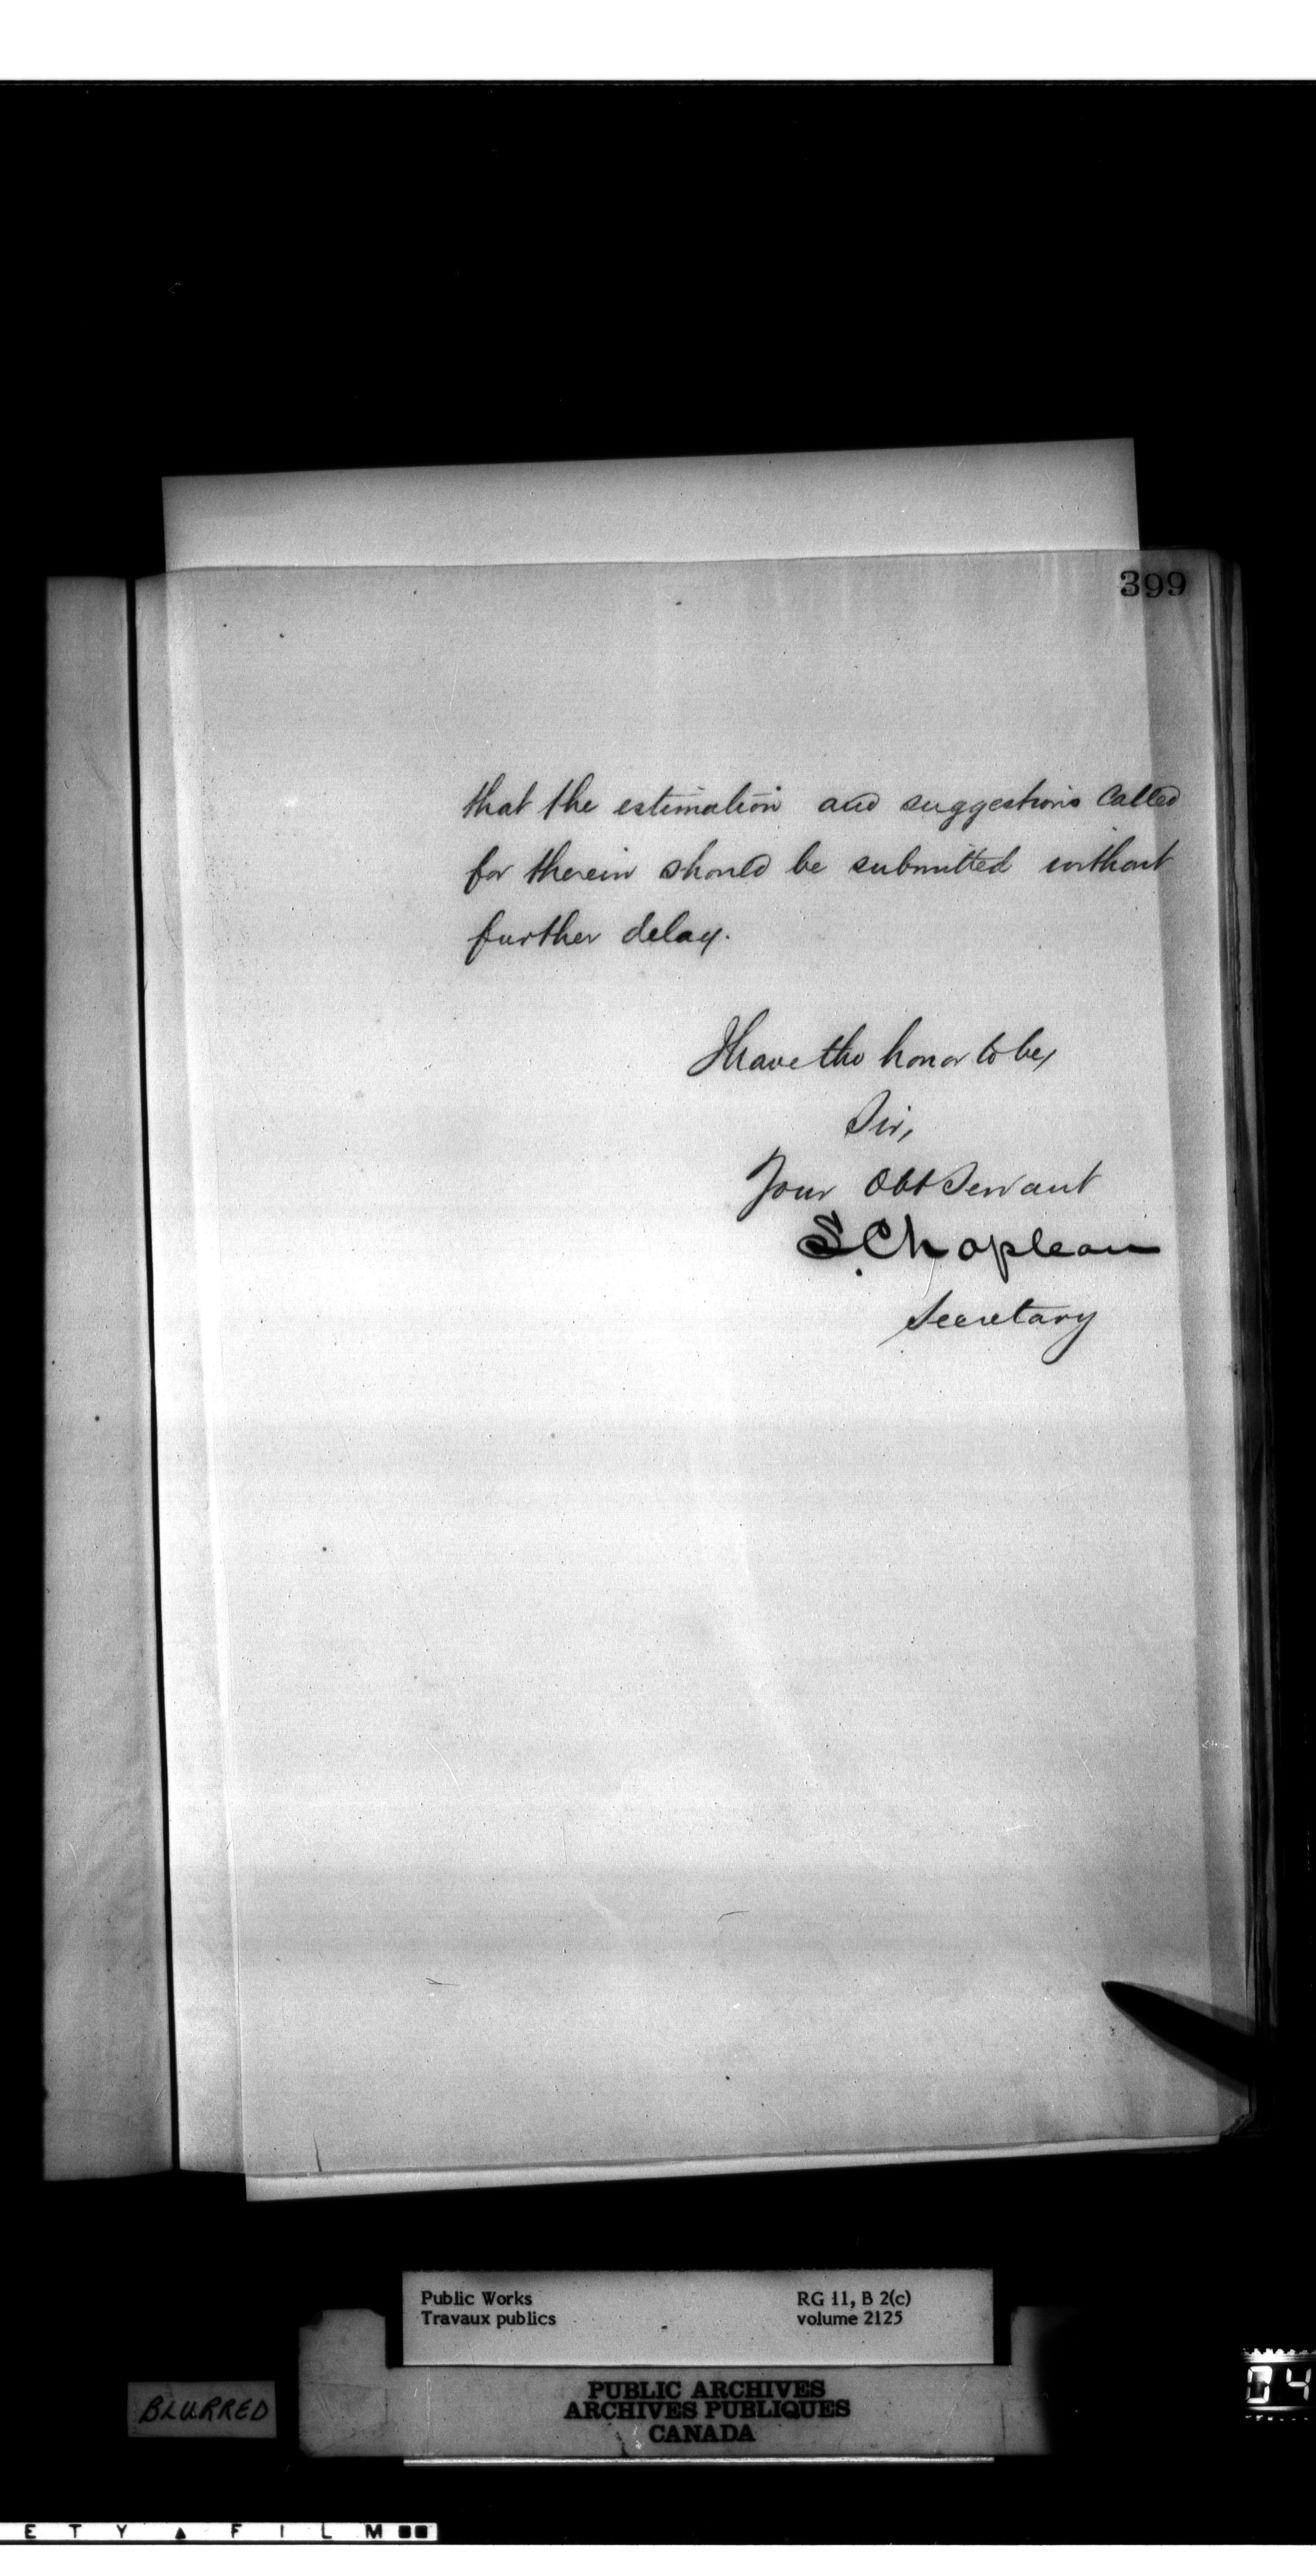 399
that the estimation and suggestions called
for therein should be submitted without
further delay.
I have the honor to be,
Sir,
Your Obt Servant
S. Chapleau
Secretary
Public Works
Travaux publics
RG 11, B 2(c)
volume 2125
PUBLIC ARCHIVES
ARCHIVES PUBLIQUES
CANADA
BLURRED
04
ETY ▲ FILM